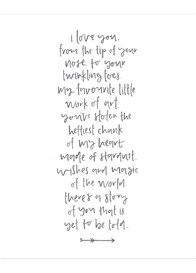 I love you.
from the tip of your
nose to your
twinkling toes.
my favourite little
work of art.
you've stolen the
heftiest chunk
of my heart.
made of stardust.
wishes and magic
of the world.
there's a story
of you that is
yet to be told.